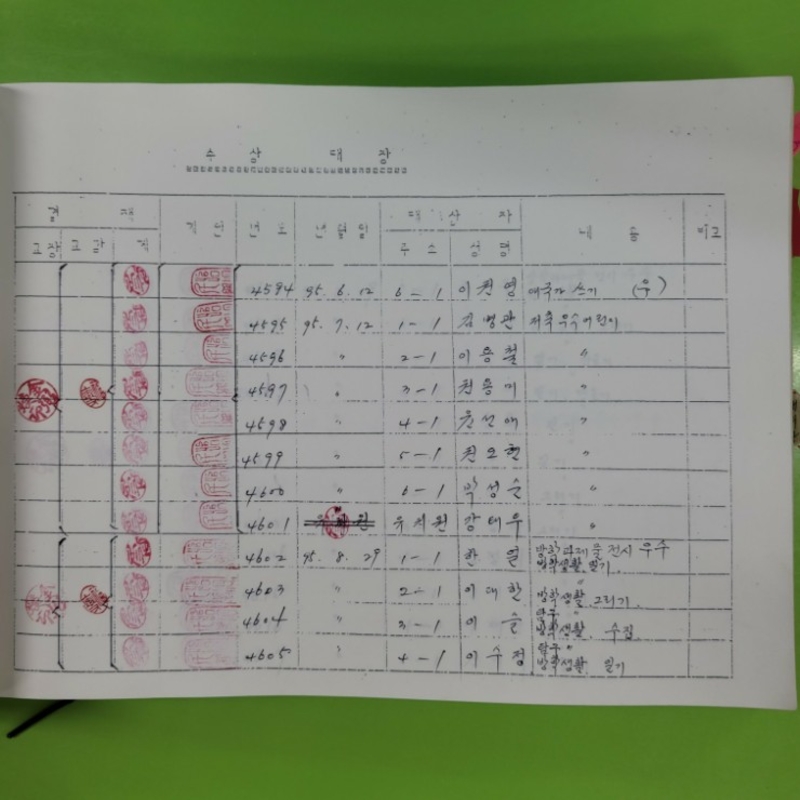 수 상 대 장
결 재 계 인 번 호 년 월 일 대 상 자 내 용 비고
교장 교감 계 주 소 성 명
4594 95. 6. 12 6-1 이원영 쓰기 (우)
4595 95. 7. 12 1-1 김병관 저축 우수 어린이
4596 〃 2-1 이용철 〃
4597 〃 3-1 권용미 〃
4598 〃 4-1 윤선애 〃
4599 〃 5-1 권오현 〃
4600 〃 6-1 박성순 〃
4601 유치원 유치원 강태우 〃
4602 95. 8. 29 1-1 한 열 방학 과제물 전시 우수
방학생활. 일기.
4603 〃 2-1 이대한 〃
방학생활. 그리기.
4604 〃 3-1 이 슬 〃
방학생활. 수집
4605 〃 4-1 이수정 〃
방학생활. 일기